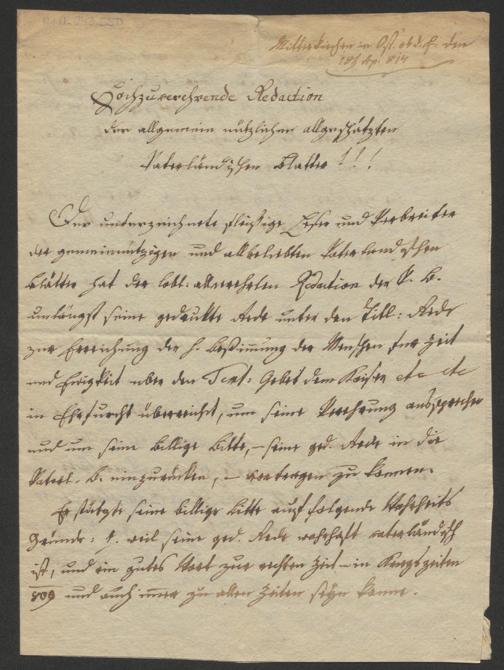 Mitterkirchen in Öst. ob d. E. den
18t Ap. 814
Hochzuverehrende Redaction
der allgemein nützlichen allgeschätzten
Vaterländischen Blätter!!!
Der unterzeichnete fleißige Leser und Verbreiter
der gemeinnützigen und allbeliebten Vaterländischen
Blätter hat der löbl: allverehrten Redaction der V. B.
unlängst seine gedruckte Rede unter den Titl: Rede
zur Erreichung der h. Bestimmung der Menschen für Zeit
und Ewigkeit über den Text: Gebet dem Kaiser etc etc
in Ehrfurcht überreicht, um seine Verehrung auszusprechen
und um seine billige Bitte, – seine ged. Rede in die
Vaterl. B. einzurücken, – vortragen zu können.
Er stützte seine billige Bitte auf folgende Wahrheits
Gründe: 1. weil seine ged. Rede wahrhaft vaterländisch
ist, und ein gutes Wort zur rechten Zeit – in Kriegszeiten
809 und auch immer zu allen Zeiten seyn kann.